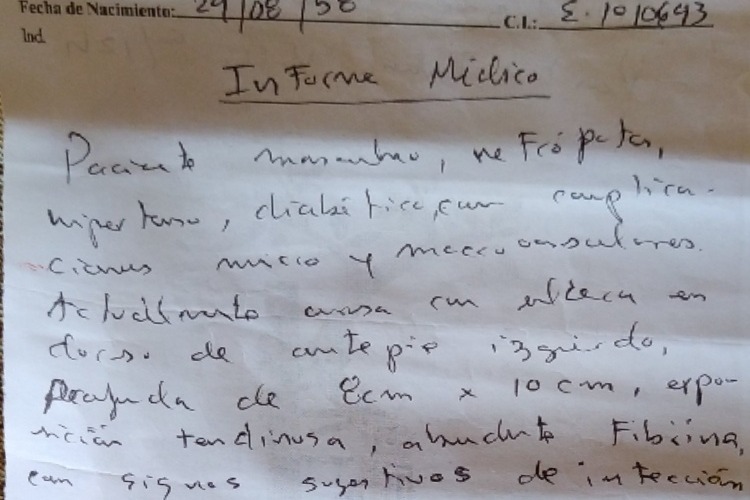 Fecha de Nacimiento: 29/08/58 C.I.: E. 1010693
Ind.
Informe Médico
Paciente masculino, nefrópata,
hipertenso, diabético, con complica-
ciones micro y macrovasculares.
Actualmente cursa con ulcera en
dorso de ante pie izquierdo,
profunda de 8cm x 10 cm, expo-
sición tendinosa, abundante Fibrina,
con signos sugestivos de infección